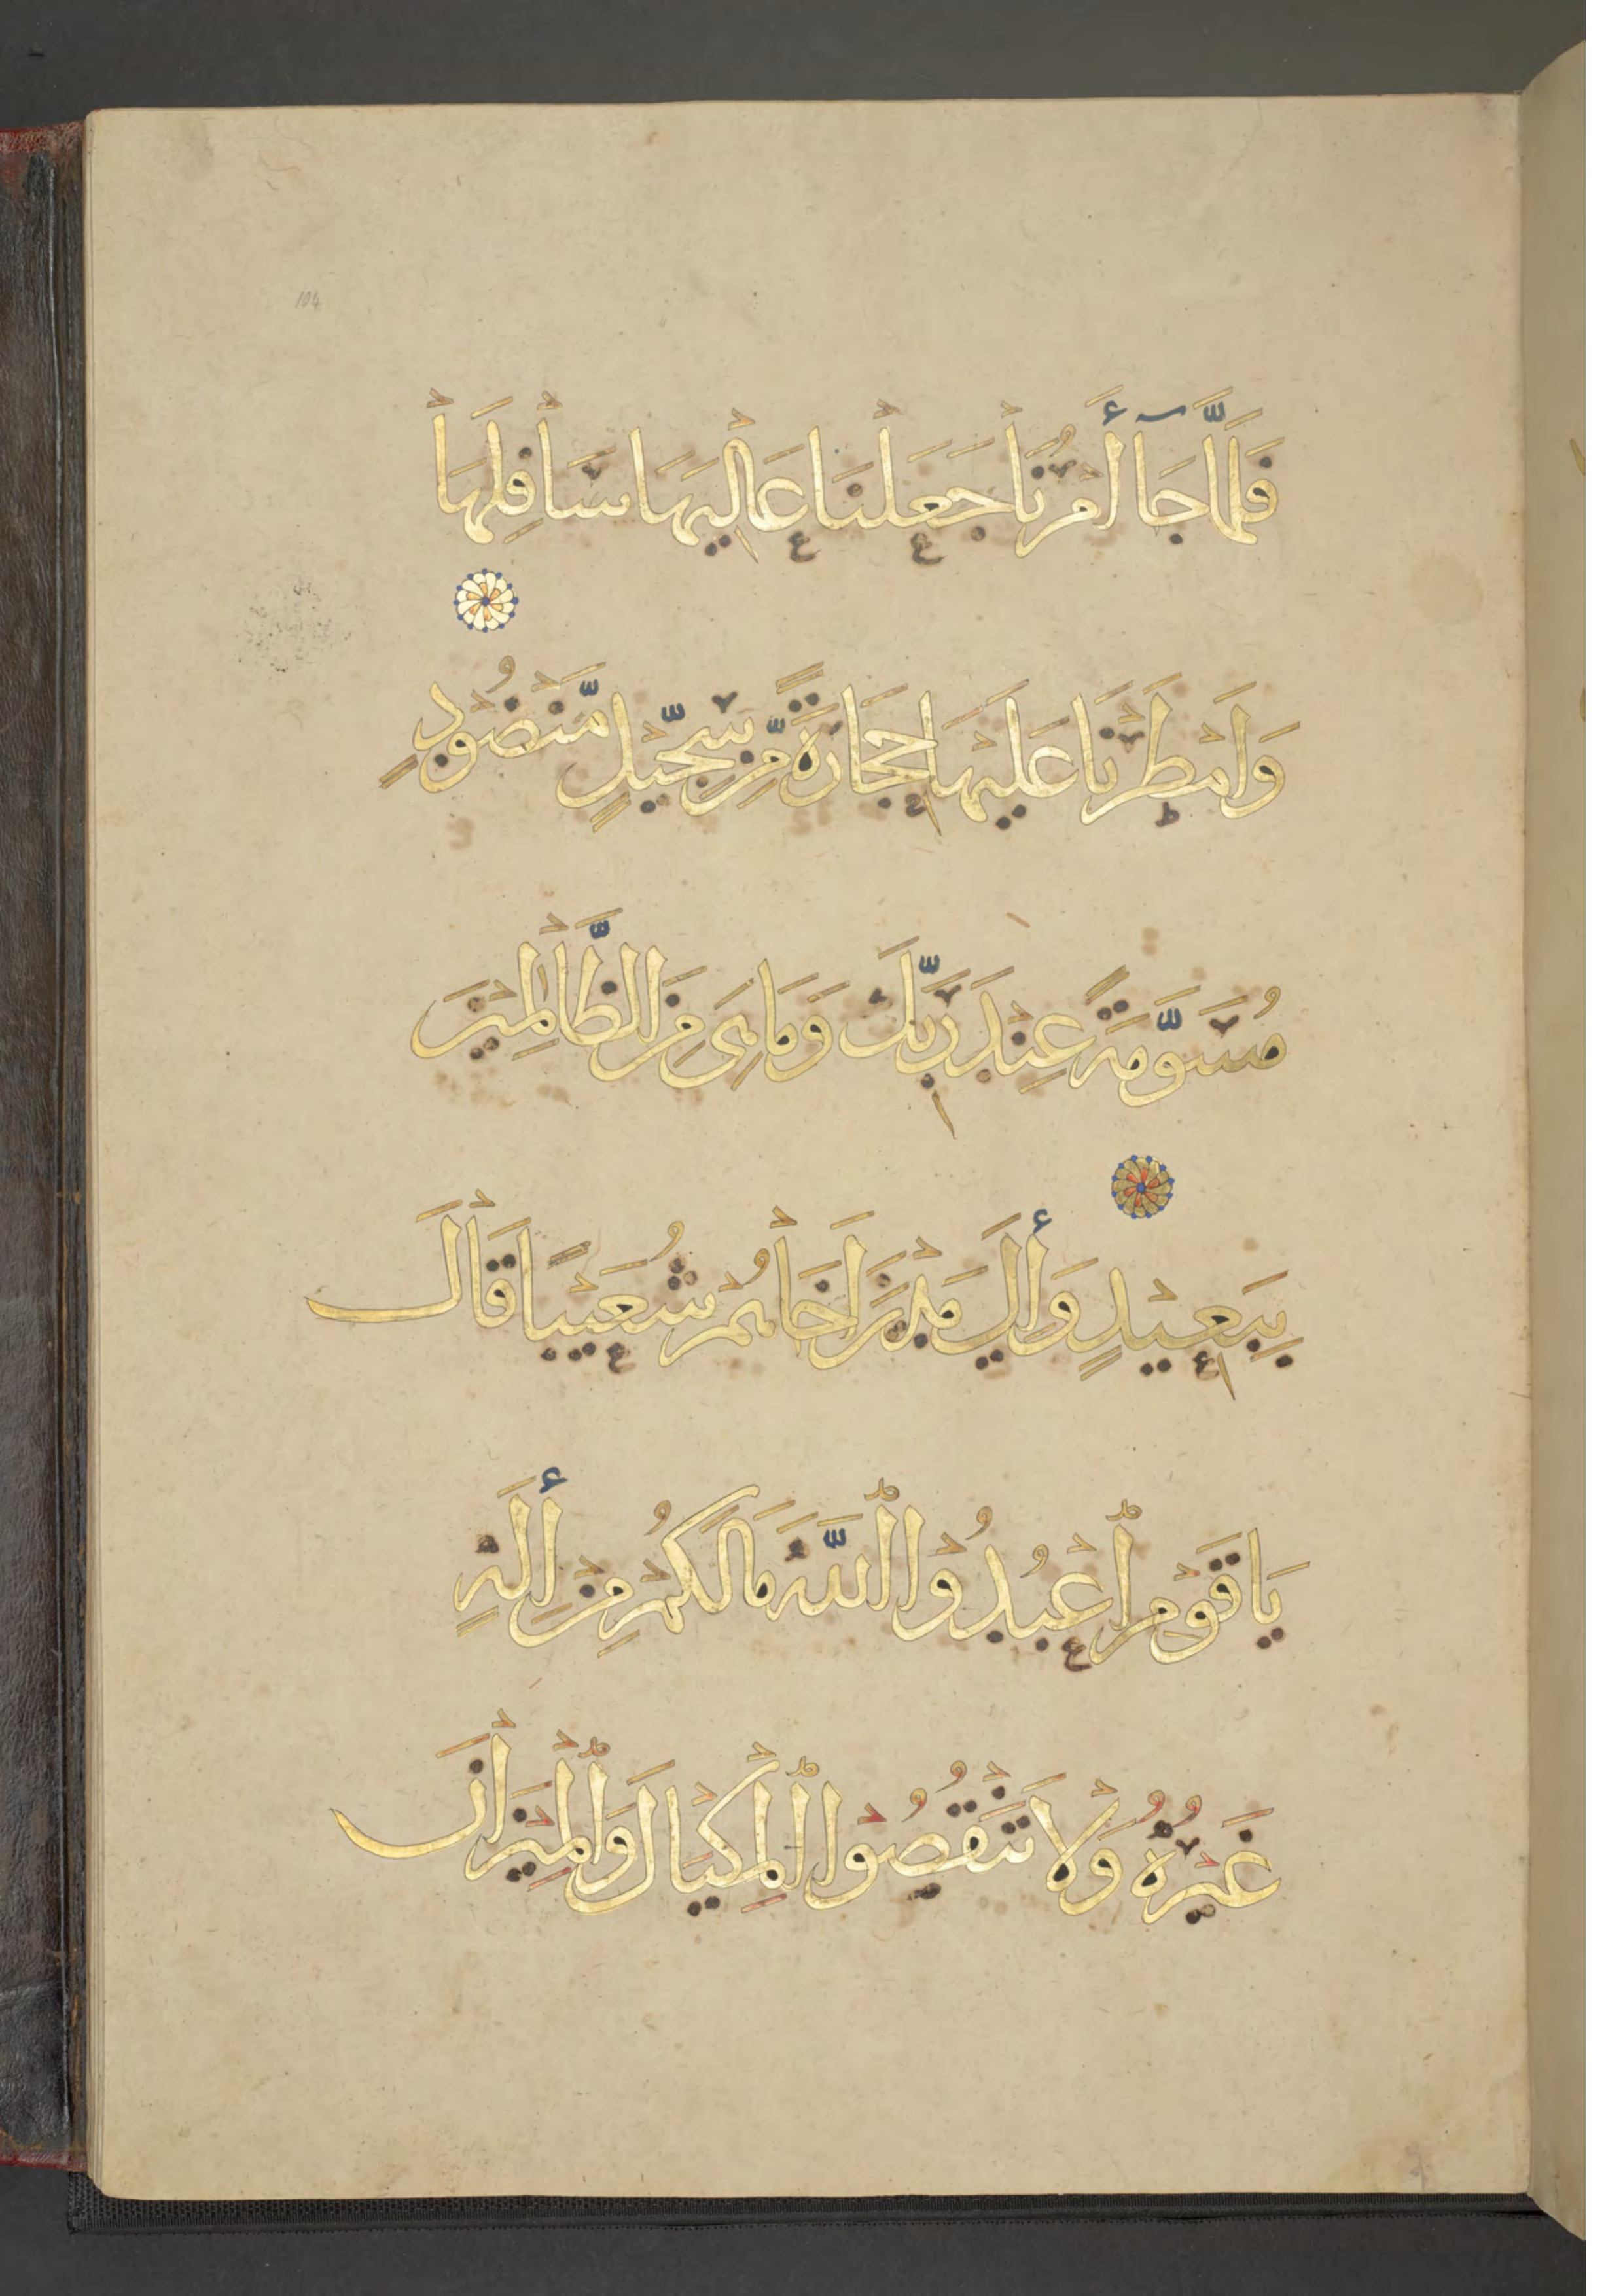 104
فَلَمَّا جَآ أَمْرُنَا جَعَلْنَا عَالِيَهَا سَافِلَهَا
وَأَمْطَرْنَا عَلَيْهَا حِجَارَةً مِّن سِجِّيلٍ مَّنْضُودٍ
مُسَوَّمَةً عِنْدَ رَبِّكَ وَمَا هِيَ مِنَ الظَّالِمِينَ
بِبَعِيدٍ وَإِلَى مَدْيَنَ أَخَاهُمْ شُعَيْبًا قَالَ
يَا قَوْمِ ٱعْبُدُوا ٱللَّهَ مَا لَكُمْ مِنْ إِلَهٍ
غَيْرُهُ وَلَا تَنْقُصُوا ٱلْمِكْيَالَ وَٱلْمِيزَانَ